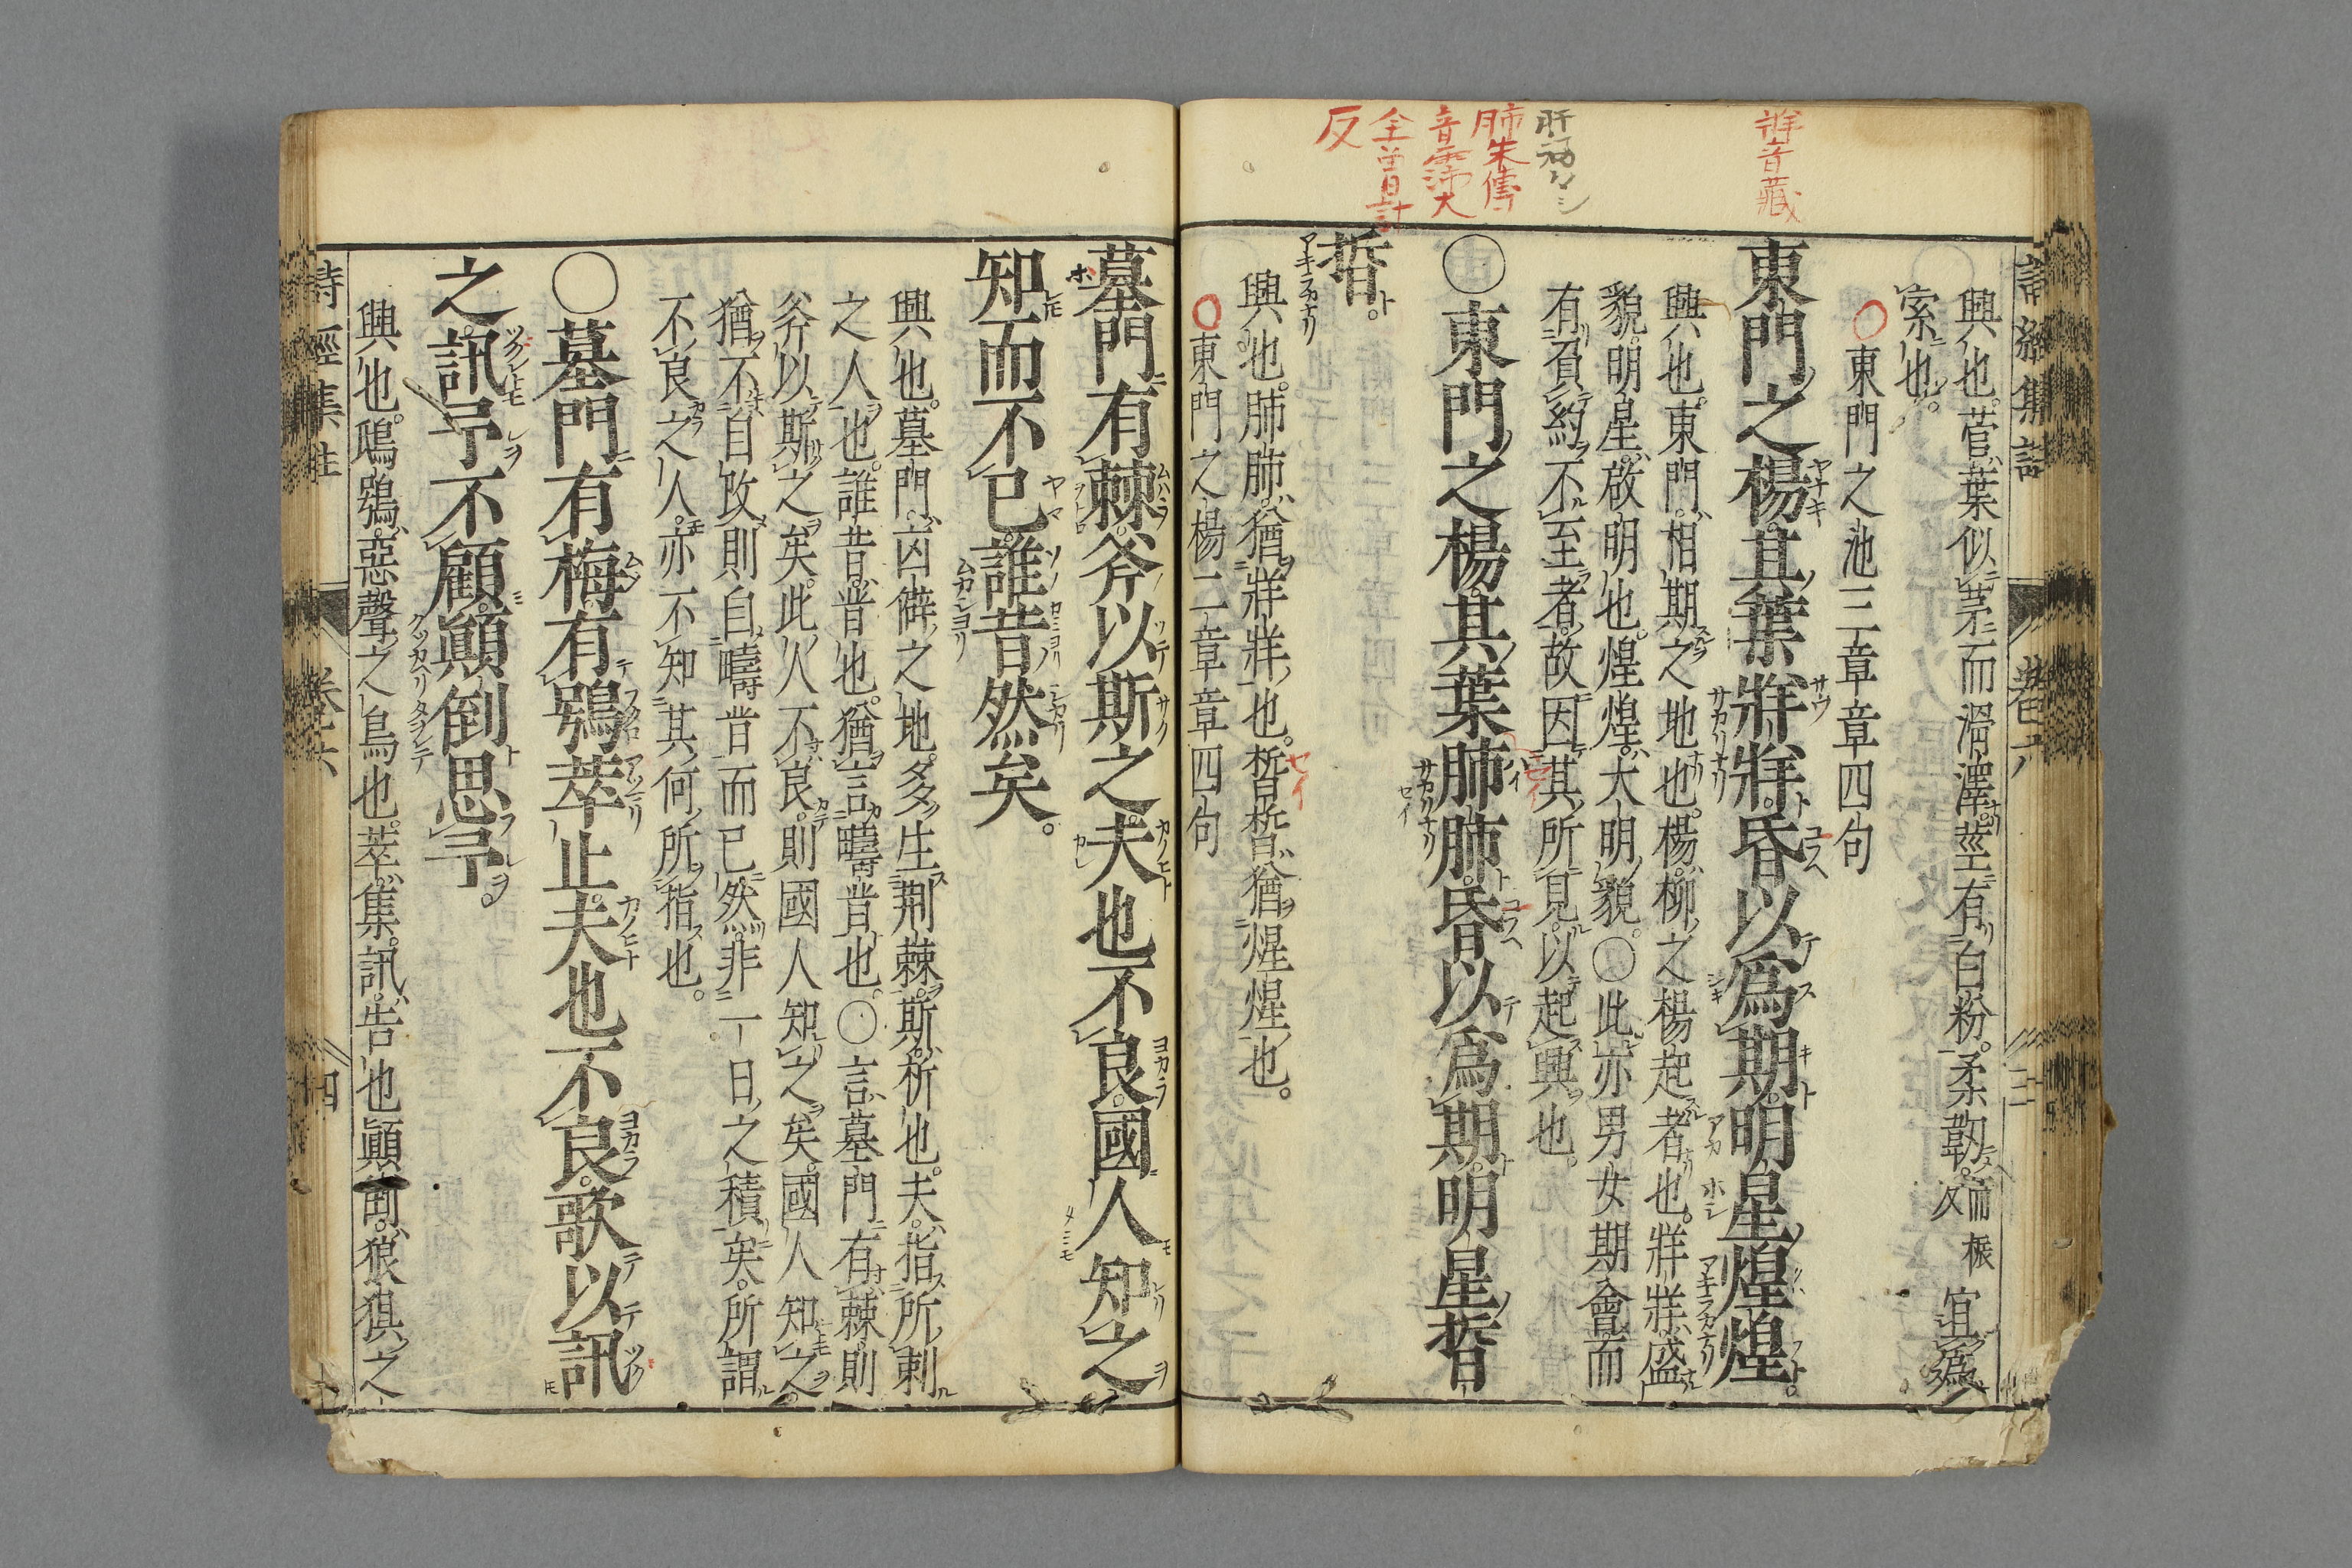 牂音藏
肺朱傳
音霈沛大
全普計
反
興也。菅葉似茅而滑澤。莖有白粉。柔韌。宜爲
索也。
○東門之池三章章四句
東門之楊其葉牂牂昏以爲期明星煌煌。
興也。東門相期之地也。楊柳之楊起者也。牂牂盛
貌。明星。啟明也。煌煌。大明貌。○此亦男女期會而
有負約不至者。故因其所見。以起興也。
○東門之楊其葉肺肺昏以爲期明星晢
晢。
興也。肺肺。猶牂牂也。晢晢。猶煌煌也。
○東門之楊二章章四句
墓門有棘。斧以斯之夫也不良。國人知之
知而不已。誰昔然矣。
興也。墓門。凶僻之地。多生荆棘。斯。析也。夫。指所刺
之人也。誰昔。昔也。猶言疇昔也。○言墓門有棘。則
斧以斯之矣。此人不良。則國人知之矣。國人知之。
猶不自改。則自疇昔而已然。非一日之積矣。所謂
不良之人。亦不知其何所指也。
○墓門有梅有鴞萃止夫也不良。歌以訊
之訊予不顧顚倒思予。
興也。鴟鴞。惡聲之鳥也。萃。集。訊。告也。顚倒。狼狽之
詩經集註 卷之六 四